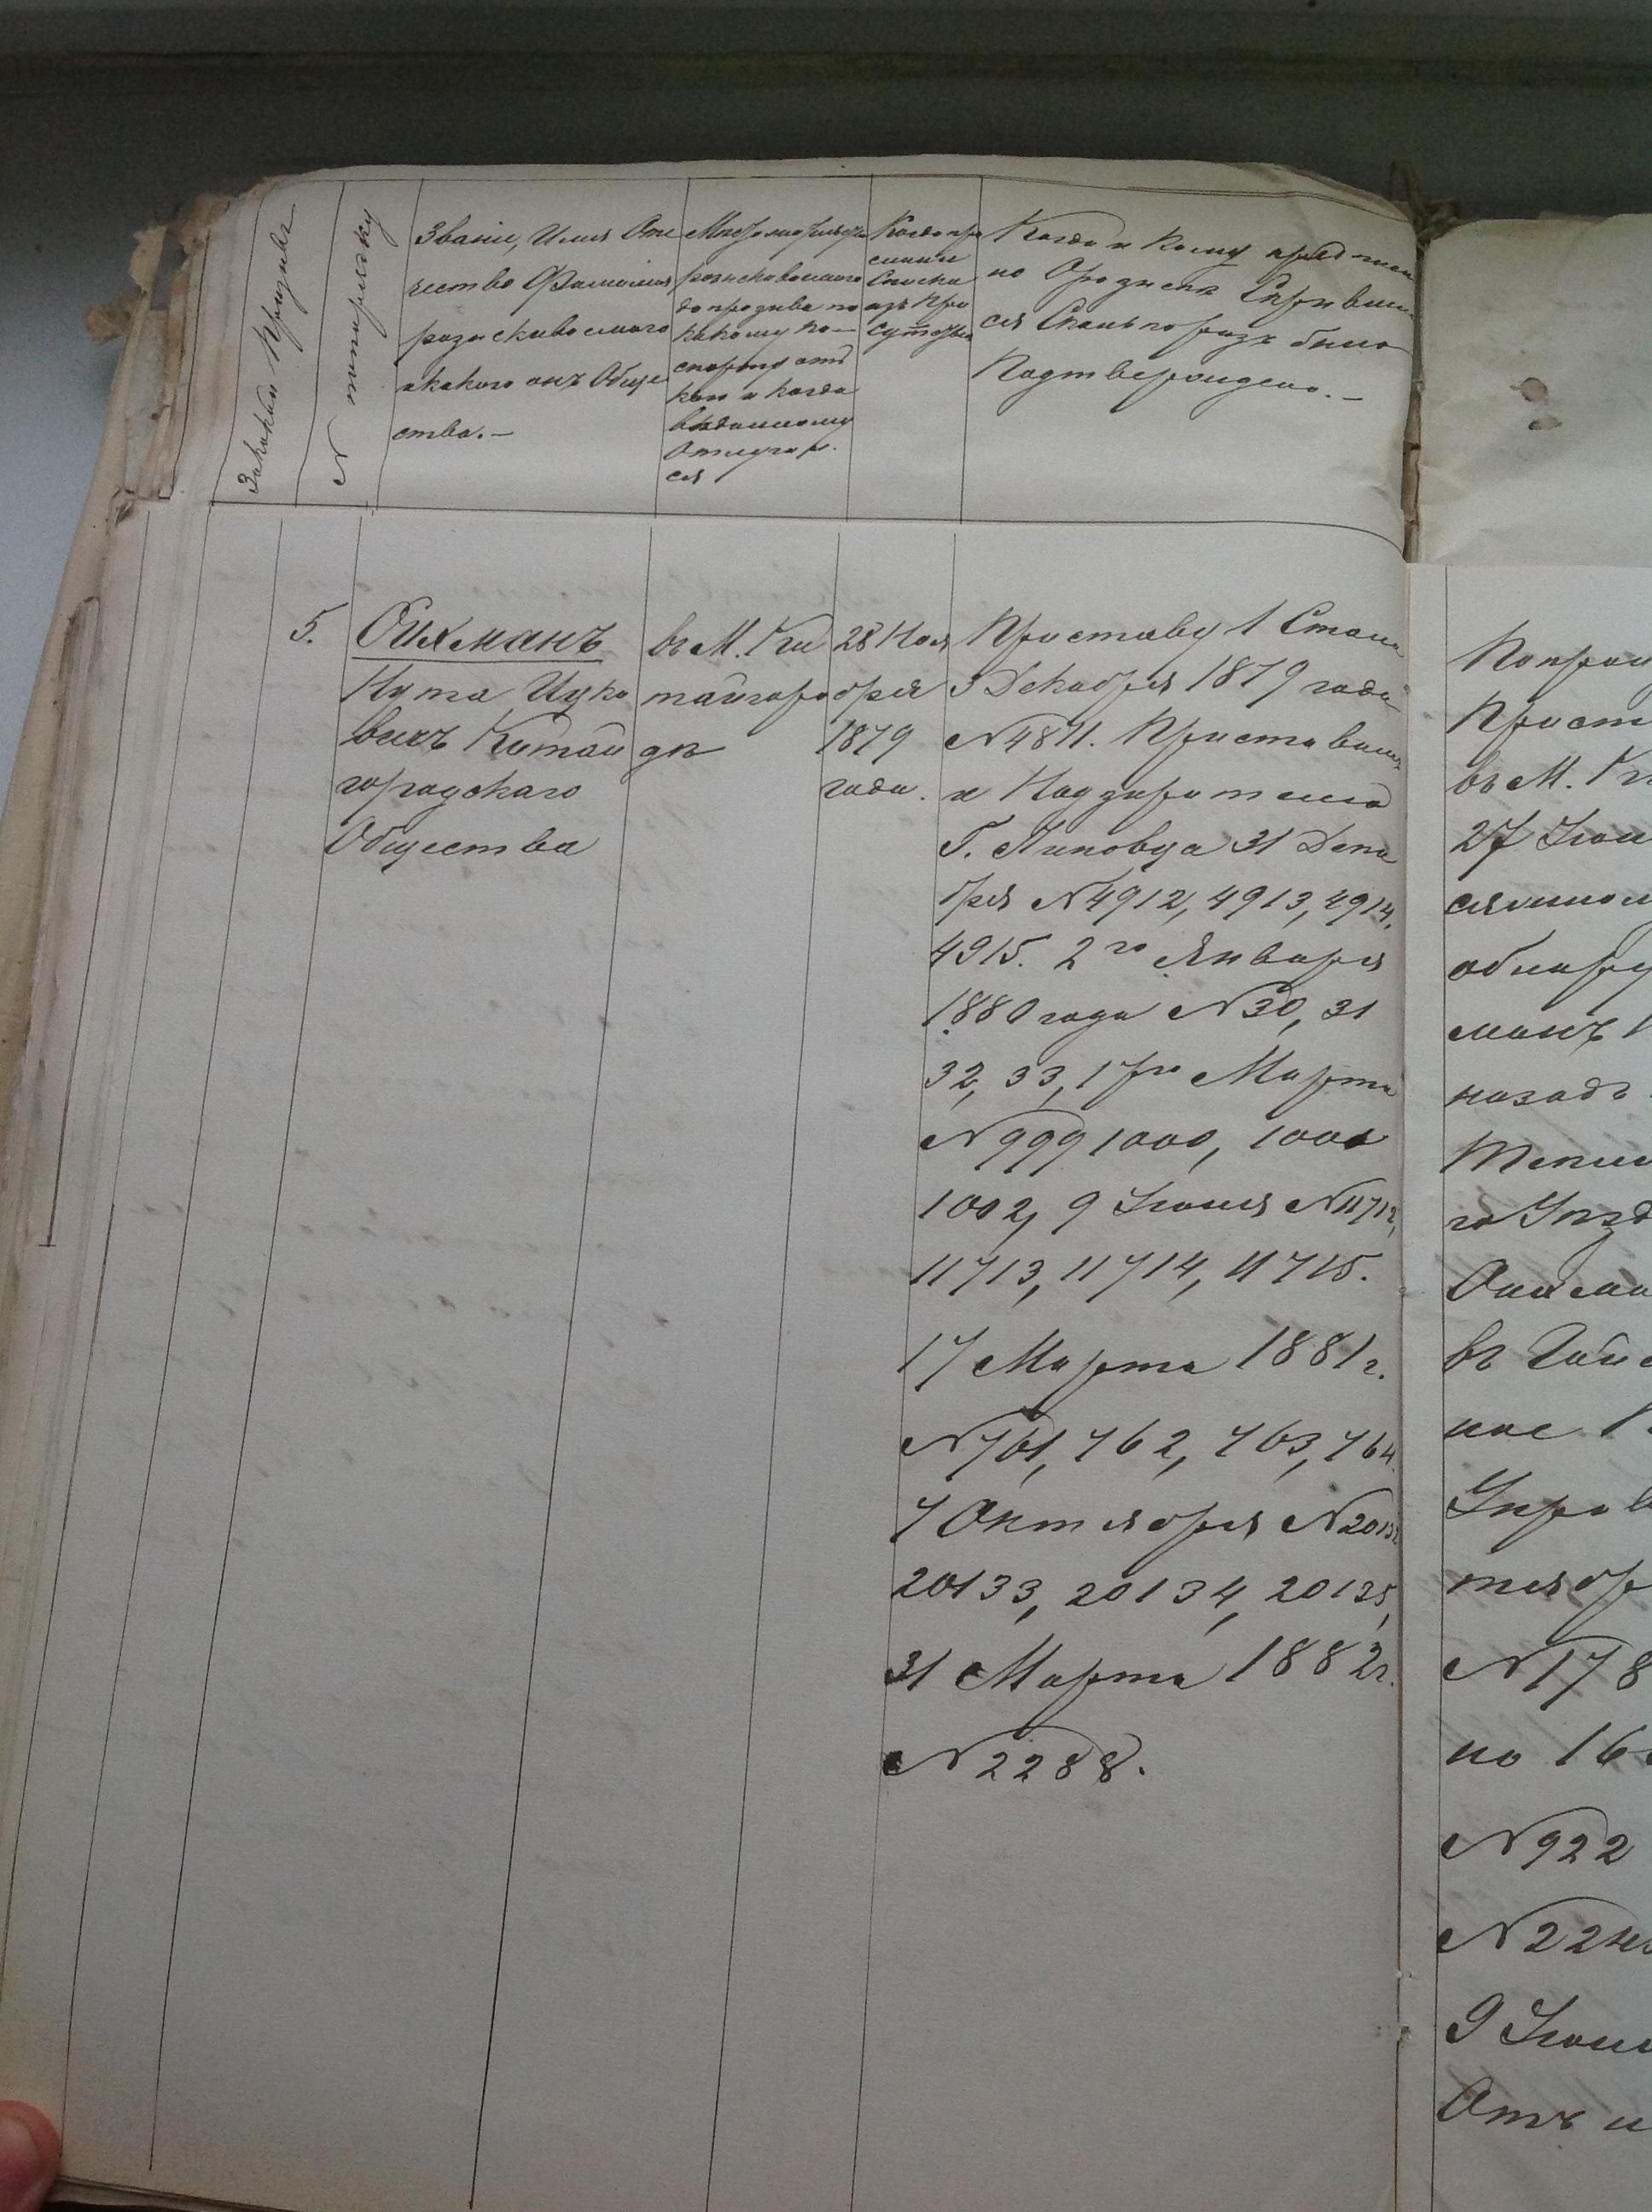 За какой Призывъ
N попорядку
Званіе, Имя Отче
чество Фамилія
разыскиваемаго
икакого онъ Обще
ства.—
Место жительства
разыскиваемаго
до призыва по
какому па—
спорту отъ
кого и когда
выданному
Отлучал.
ся
Когда при
сланы
Списки
изъ При
сутствія
Когда и Кому предписа
но Орозыске Скрывши
ся Сколько разъ было
Подтверждено.—
5.
Ойхманъ
Нута Ицко
вичъ Китай
городскаго
Общества
въ М. Ки
тайгоро
дѣ
28 Ноя
бря
1879
года.
Приставу 1 Стана
3 Декабря 1879 года
N 4811. Приставамъ
и Надзирателю
Г. Липовца 31 Дека
бря N 4912, 4913, 4914,
4915. 2го Января
1880 года N 30, 31
32, 33, 17го Марта
N 999 1000, 1001
1002, 9 Іюня N 11712,
11713, 11714, 11715.
17 Марта 1881 г.
N 761, 762, 763, 764.
7 Октября N 20132
20133, 20134, 20135,
31 Марта 1882 г.
N 2288.
Прист
въ М. Ки
27 Іюн
обнару
манъ
назадъ
го Уѣзд
Ойхма
въ Гай
Упра
тябр
N 178
по 16
N 922
N 224
9 Іюн
Отъ